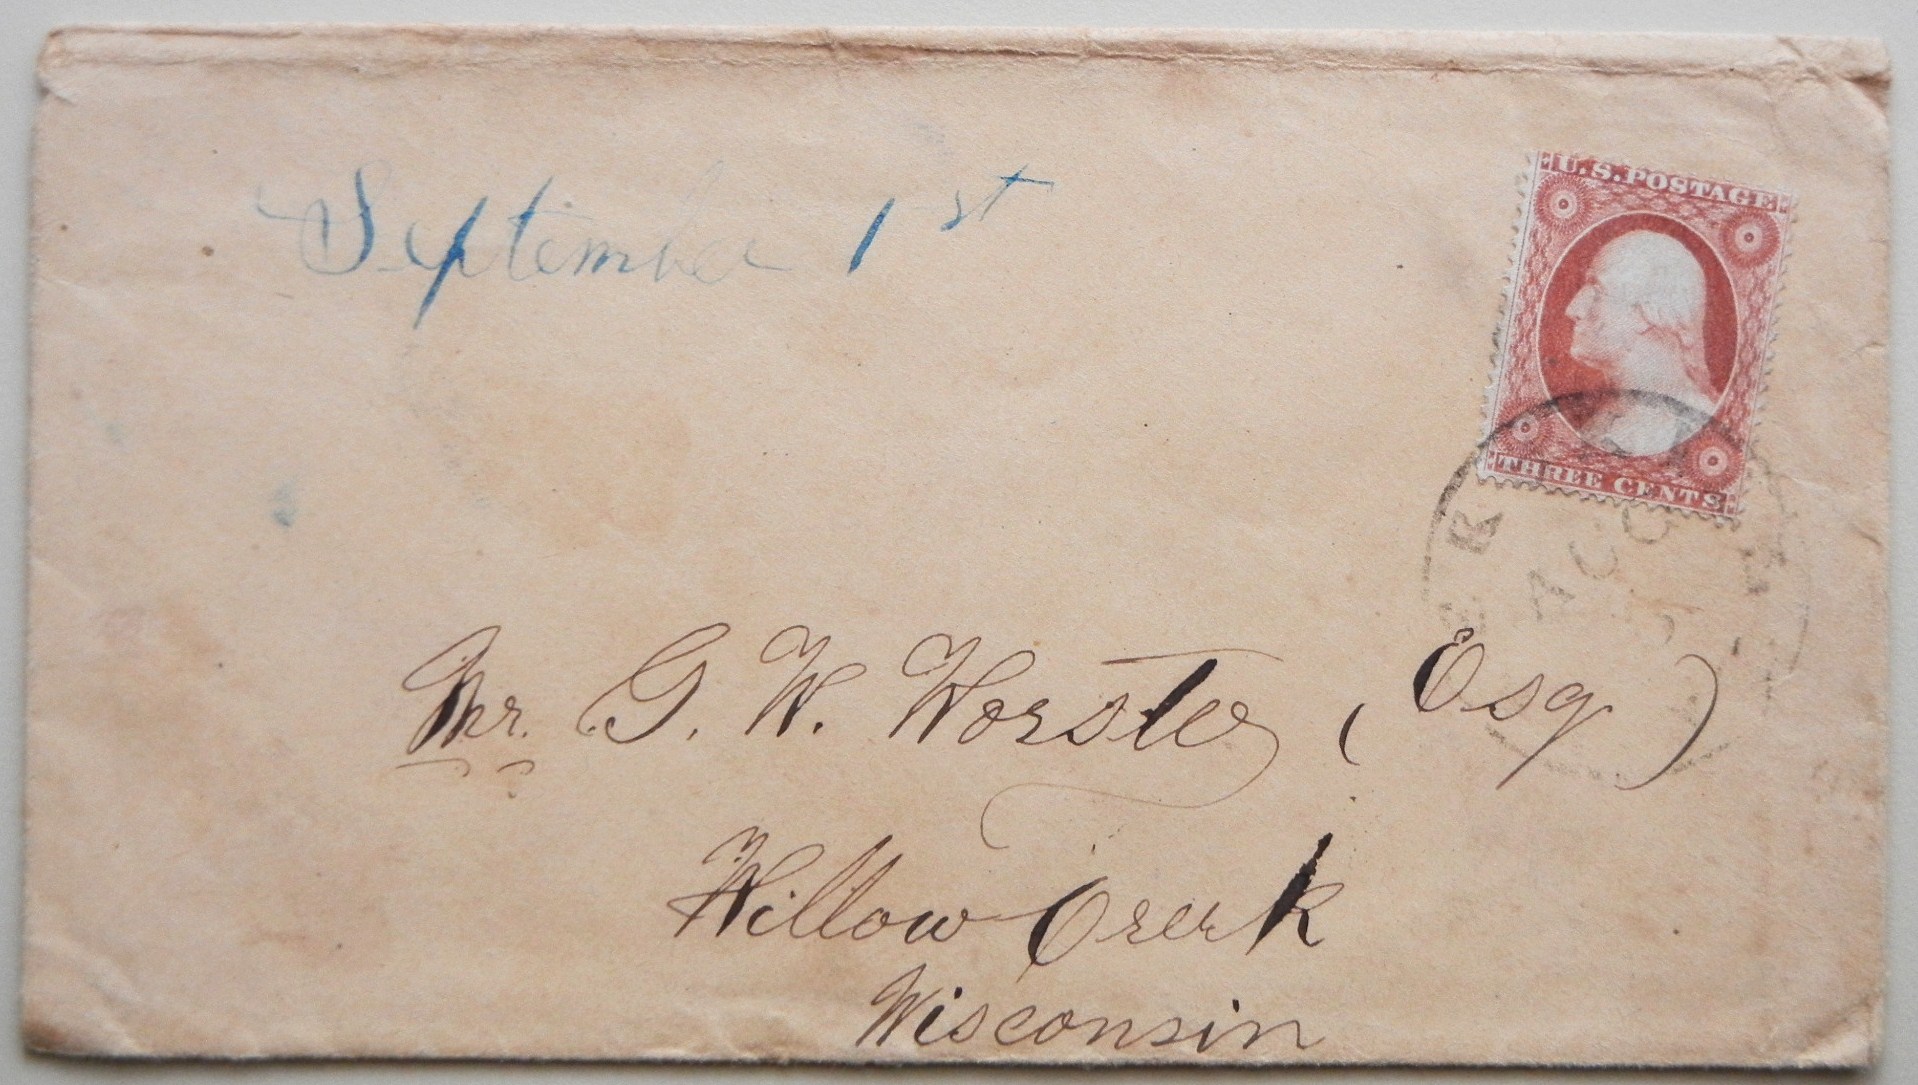 September 1st
U.S. POSTAGE
THREE CENTS
AUG
Mr. G. W. Worster (Esq)
Willow Creek
Wisconsin